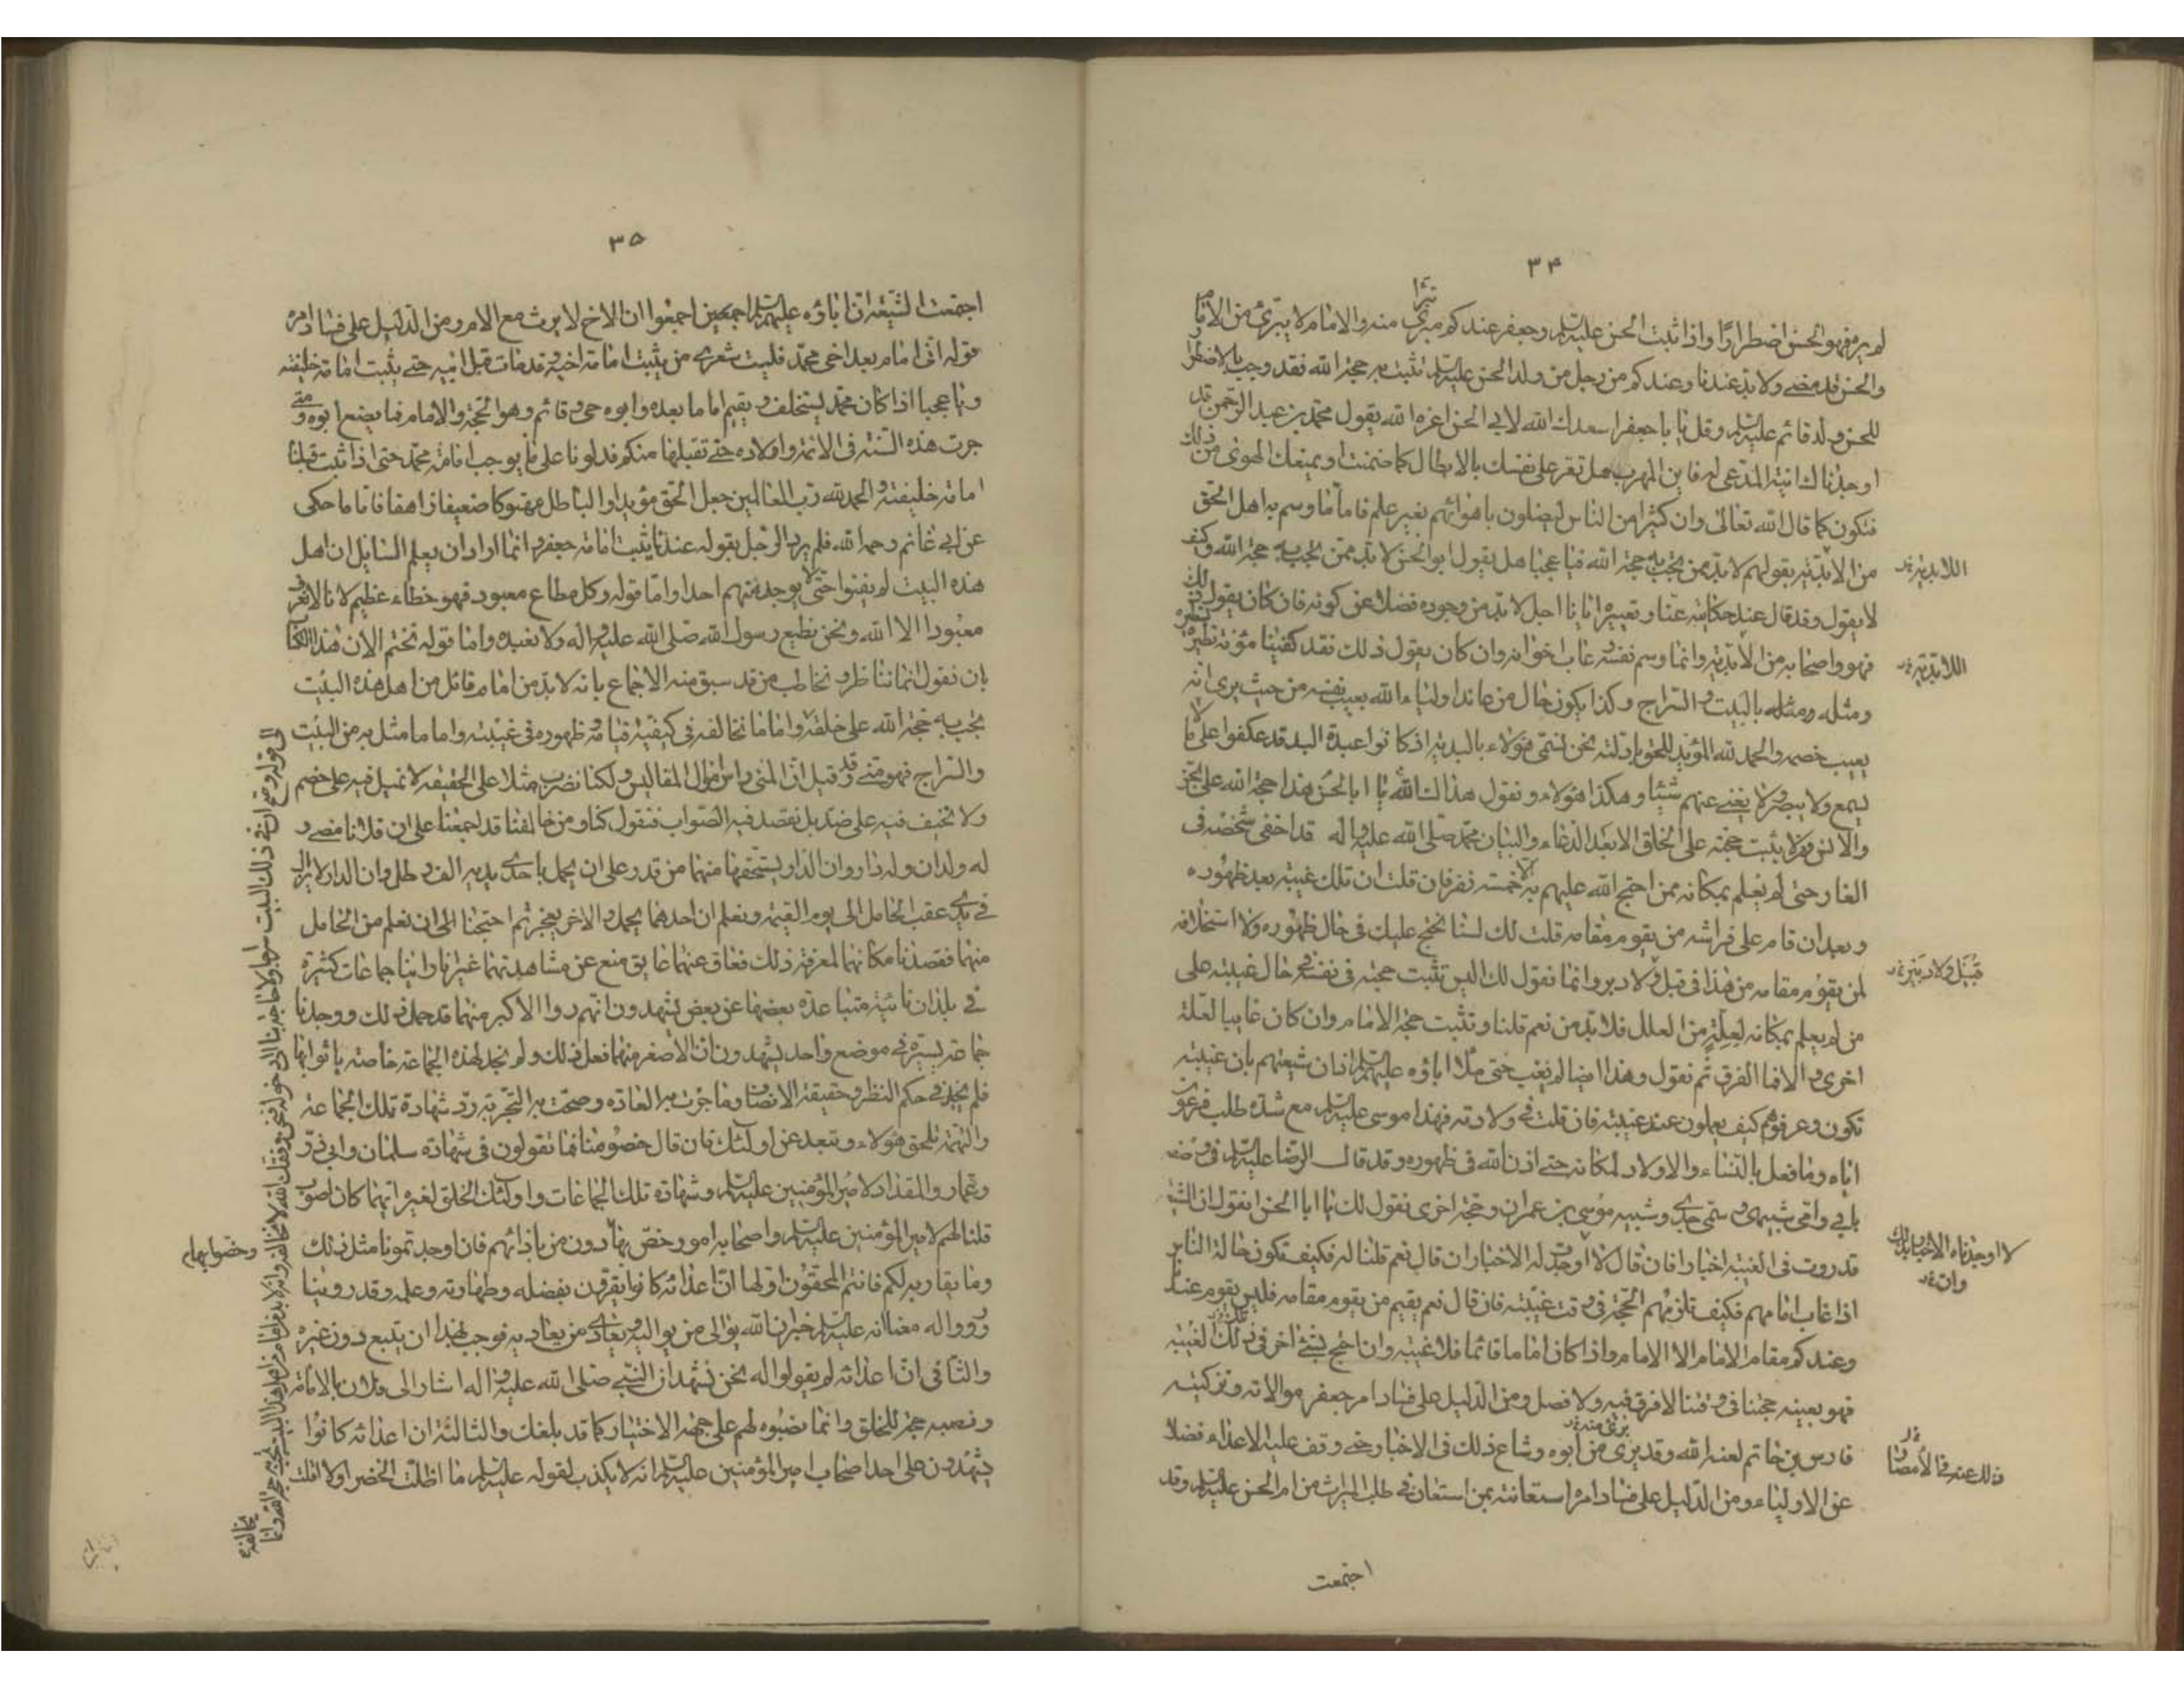 ٣٤
لم يره فهو الحسن اضطرارا واذا ثبت الحسن عليه السلم وجعفر عندكم مبرئ تبرّا منه والامام لا يتبرئ من الامام
والحسن قد مضى ولا بد عندنا وعندكم من رجل من ولد الحسن عليه السلم تثبت به حجة الله فقد وجب بالاضطرار
للحسن ولد قائم عليه السلم وقل يا با جعفر اسعدك الله لابي الحسن اعزه الله يقول محمد بن عبد الرحمن قد
اوجدناك انية المدعى له فاين المهرب هل تقر على نفسك بالابطال كما ضمنت او يمنعك الهوى من ذلك
فتكون كما قال الله تعالى وان كثيرا من الناس ليضلون باهوائهم بغير علم فاما ما وسم به اهل الحق
من الابدية بقولهم لا بد من تجب به حجة الله فيا عجبا هل يقول ابو الحسن لا بد ممن تجب به حجة الله وكيف
لا يقول وقد قال عند حكايته عنا وتعييره ايانا اجل لا بد من وجوده فضلا عن كونه فان كان يقول ذلك
فهو واصحابه من الابدية وانما وسم نفسه وعاب اخوانه وان كان يقول ذلك فقد كفينا مؤنة تنظيره
ومثله ومثله بالبيت والسراج وكذا يكون حال من عاند اولياء الله يعيب نفسه من حيث يرى انه
يعيب خصمه والحمد لله المؤيد للحق بادلته نحن نسمي هؤلاء بالبدية اذ كانوا عبدة البد قد عكفوا على ما لا
يسمع ولا يبصر ولا يغني عنهم شيئا وهكذا هؤلاء ونقول هداك الله يا ابا الحسن هذا حجة الله على الجن
والانس ومن لا يثبت حجته على الخلق الا بعد الدعاء والبيان محمد صلى الله عليه واله قد اخفى شخصه في
الغار حتى لم يعلم بمكانه ممن احتج الله عليهم به الا خمسة نفر فان قلت ان تلك غيبة بعد ظهوره
وبعد ان قام على فراشه من يقوم مقامه قلت لك لسنا نحتج عليك في حال ظهوره ولا استخلافه
لمن يقوم مقامه من هذا في قبيل ولا دبير وانما نقول لك اليس تثبت حجته في نفسه في حال غيبته على
من لم يعلم بمكانه لعلة من العلل فلا بد من نعم قلنا وتثبت حجة الامام وان كان غايبا لعلة
اخرى والا فما الفرق ثم نقول وهذا ايضا لم يغب حتى ملا اباؤه عليهم السلم اذان شيعتهم بان غيبته
تكون وعرفوهم كيف يعملون عند غيبته فان قلت في ولادته فهذا موسى عليه السلم مع شدة طلب فرعون
اياه وما فعل بالنساء والاولاد لمكانه حتى اذن الله في ظهوره وقد قال الرضا عليه السلم في وصفه
بابي وامي شبيهي وسمي جدي وشبيه موسى بن عمران وحجة اخرى نقول لك يا ابا الحسن اتقول ان الشيعة
قد روت في الغيبة اخبارا فان قال لا اوجدت له الاخبار ان قال نعم قلنا له فكيف تكون حالة الناس
اذا غاب امامهم فكيف تلزمهم الحجة في وقت غيبته فان قال نعم يقيم من يقوم مقامه فليس يقوم عندنا
وعندكم مقام الامام الا الامام واذا كان اماما قائما فلا غيبة وان احتج بشئ اخر في تلك الغيبة
فهو بعينه حجتنا في وقتنا لا فرق فيه ولا فصل ومن الدليل على فساد امر جعفر موالاته وتزكيته
فارس بن حاتم لعنه الله وقد برئ من ابوه وشاع ذلك في الاخبار حتى وقف عليه الاعداء فضلا
عن الاولياء ومن الدليل على فساد امره استعانته بمن استعان في طلب الميراث من ام الحسن عليه السلم وقد
اجتمعت
اللابدية
اللابدية
قبيل ولا دبير
لا اوجدناه الاخبار بذلك
وان
ذلك عنه في الامصار
٣٥
اجتمعت الشيعة ان اباؤه عليهم السلم اجمعين اجمعوا ان الاخ لا يرث مع الام ومن الدليل على فساد امره
قوله اني امام بعد اخي محمد فليت شعري متى يثبت امامة اخيه وقد مات قبل ابيه حتى يثبت امامة خليفته
ويا عجبا اذا كان محمد يستخلف ويقيم اماما بعده وابوه حي قائم وهو الحجة والامام فما يصنع ابوه ومتى
جرت هذه السنة في الائمة واولاده حتى تقبلها منكم فدلونا على ما يوجب امامة محمد حتى اذا ثبت قبلنا
امامة خليفته والحمد لله رب العالمين جعل الحق مؤيدا والباطل مهتوكا ضعيفا زاهقا فاما ما حكى
عن ابي غانم رحمه الله فلم يرد الرجل بقوله عندنا يثبت امامة جعفر وانما اراد ان يعلم السايل ان اهل
هذه البيت لم يفنوا حتى لا يوجد منهم احدا واما قوله وكل مطاع معبود فهو خطاء عظيم لانا لا نعرف
معبودا الا الله ونحن نطيع رسول الله صلى الله عليه واله ولا نعبده واما قوله نختم الان هذا الكتاب
بان نقول انما نناظر ونخاطب من قد سبق منه الاجماع بانه لا بد من امام قائل من اهل هذه البيت
تجب به حجة الله على خلقه واماما نخالفه في كيفية قيامه وظهوره في غيبته واما ما مثل به من البيت
والسراج فهو منى وقد قيل ان المنى راس اموال المفاليس ولكنا نضرب مثلا على الحقيقة لا نميل فيه على خصم
ولا نحيف فيه على ضد بل نقصد فيه الصواب فنقول كنا ومن خالفنا قد اجمعنا على ان فلانا مضى و
له ولدان وله دار وان الدار يستحقها منهما من قدر على ان يحمل باحدى يديه الف رطل وان الدار لا يزال
في يدي عقب الحامل الى يوم القيمة ونعلم ان احدهما يحمل والاخر يعجز ثم احتجنا الى ان نعلم من الحامل
منهما فقصدنا مكانهما لمعرفة ذلك فعاق عنهما عايق منع عن مشاهدتهما غير انا راينا جماعات كثيرة
في بلدان نائية متباعدة بعضها عن بعض يشهدون انهم راوا الاكبر منهما قد حمل ذلك ووجدنا
جماعة يسيرة في موضع واحد يشهدون ان الاصغر منهما فعل ذلك ولم نجد لهذه الجماعة خاصة ياتوا بها
فلم يجز في حكم النظر وحقيقة الانصاف وما جرت به العادة وصحت به التجربة رد شهادة تلك الجماعة
والتهمة تلحق هؤلاء وتبعد عن اولئك فان قال خصومنا فما تقولون في شهادة سلمان وابي ذر
وعمار والمقداد لامير المؤمنين عليه السلم وشهادة تلك الجماعات واولئك الخلق لغيره ايهما كان اصوب
قلنا لهم لامير المؤمنين عليه السلم واصحابه امور خص بها دون من باذائهم فان اوجدتمونا مثل ذلك
وما يقاربه لكم فانتم المحقون اولها ان اعدائه كانوا يقرون بفضله وطهارته وعلمه وقد روينا
ورووا له معنا انه عليه السلم خبر ان الله يوالي من يواليه ويعادي من يعاديه فوجب لهذا ان يتبع دون غيره
والثاني ان اعدائه لم يقولوا له نحن نشهد ان النبي صلى الله عليه واله اشار الى فلان بالامامة
ونصبه حجة للخلق وانما نصبوه لهم على جهة الاختيار كما قد بلغك والثالثة ان اعدائه كانوا
يشهدون على احد اصحاب امير المؤمنين عليه السلم انه لا يكذب لقوله عليه السلم ما اظلت الخضراء ولا اقلت
وخصوا بها